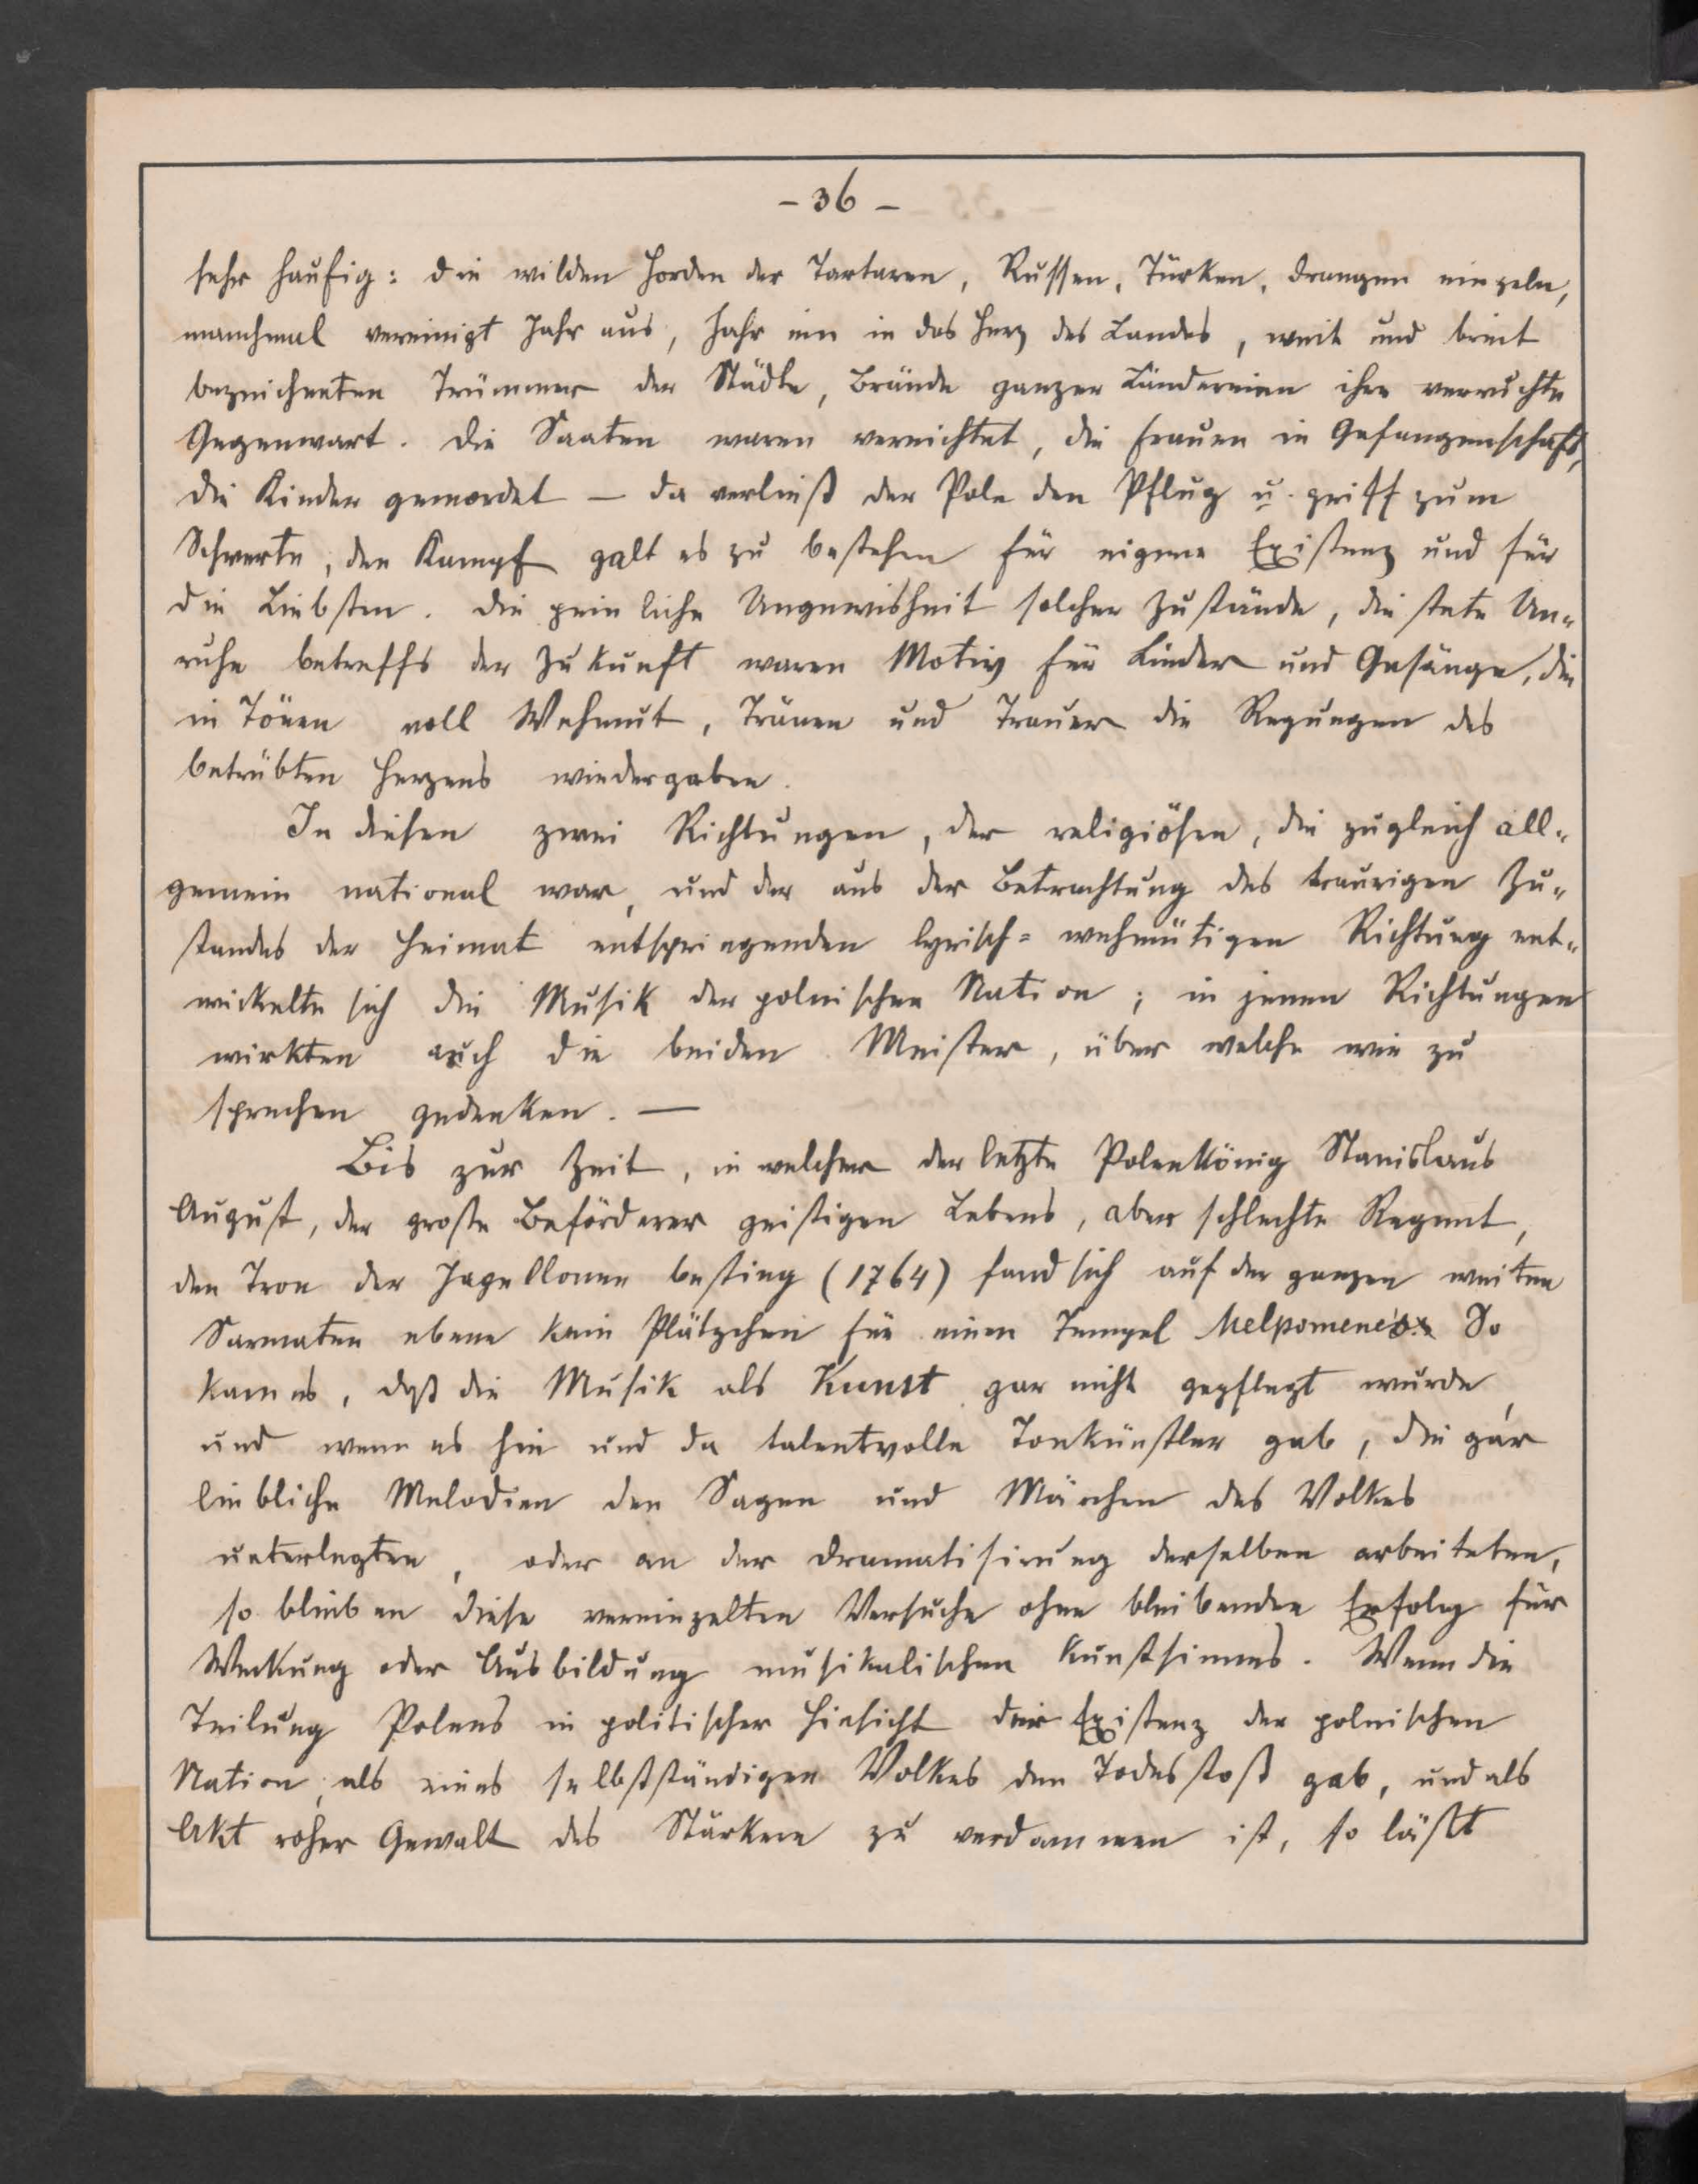 - 36 -
sehr häufig: die wilden Horden der Tartaren, Russen, Türken, drangen einzeln,
manchmal vereinigt Jahr aus, Jahr ein in das Herz des Landes, weit und breit
bezeichneten Trümmer der Städte, Brände ganzer Ländereien ihre verruchte
Gegenwart. Die Saaten waren vernichtet, die Frauen in Gefangenschaft,
die Kinder gemordet — da verließ der Pole den Pflug u. griff zum
Schwerte, den Kampf galt es zu bestehen für eigene Existenz und für
die Liebsten. Die peinliche Ungewisheit solcher Zustände, die stete Un-
ruhe betreffs der Zukunft waren Motiv für Lieder und Gesänge, die
in Tönen voll Wehmut, Tränen und Trauer die Regungen des
betrübten Herzens wiedergaben.
In diesen zwei Richtungen, der religiösen, die zugleich all-
gemein national war, und der aus der Betrachtung des traurigen Zu-
standes der Heimat entspringenden lyrisch-wehmütigen Richtung ent-
wickelte sich die Musik der polnischen Nation; in jenen Richtungen
wirkten auch die beiden Meister, über welche wir zu
sprechen gedenken. —
Bis zur Zeit, in welcher der letzte Polenkönig Stanislaus
August, der große Beförderer geistigen Lebens, aber schlechte Regent,
den Tron der Jagellonen bestieg (1764) fand sich auf der ganzen weiten
Sarmaten ebene kein Plätzchen für einen Tempel Melpomene's. So
kam es, daß die Musik als Kunst gar nicht gepflegt wurde,
und wenn es hie und da talentvolle Tonkünstler gab, die gar
liebliche Melodien den Sagen und Märchen des Volkes
unterlegten, oder an der Dramatisirung derselben arbeiteten,
so blieben diese vereinzelten Versuche ohne bleibenden Erfolg für
Weckung oder Ausbildung musikalischen Kunstsinnes. Wenn die
Teilung Polens in politischer Hinsicht der Existenz der polnischen
Nation, als eines selbstständigen Volkes den Todesstoß gab, und als
Akt roher Gewalt des Stärkern zu verdammen ist, so läßt